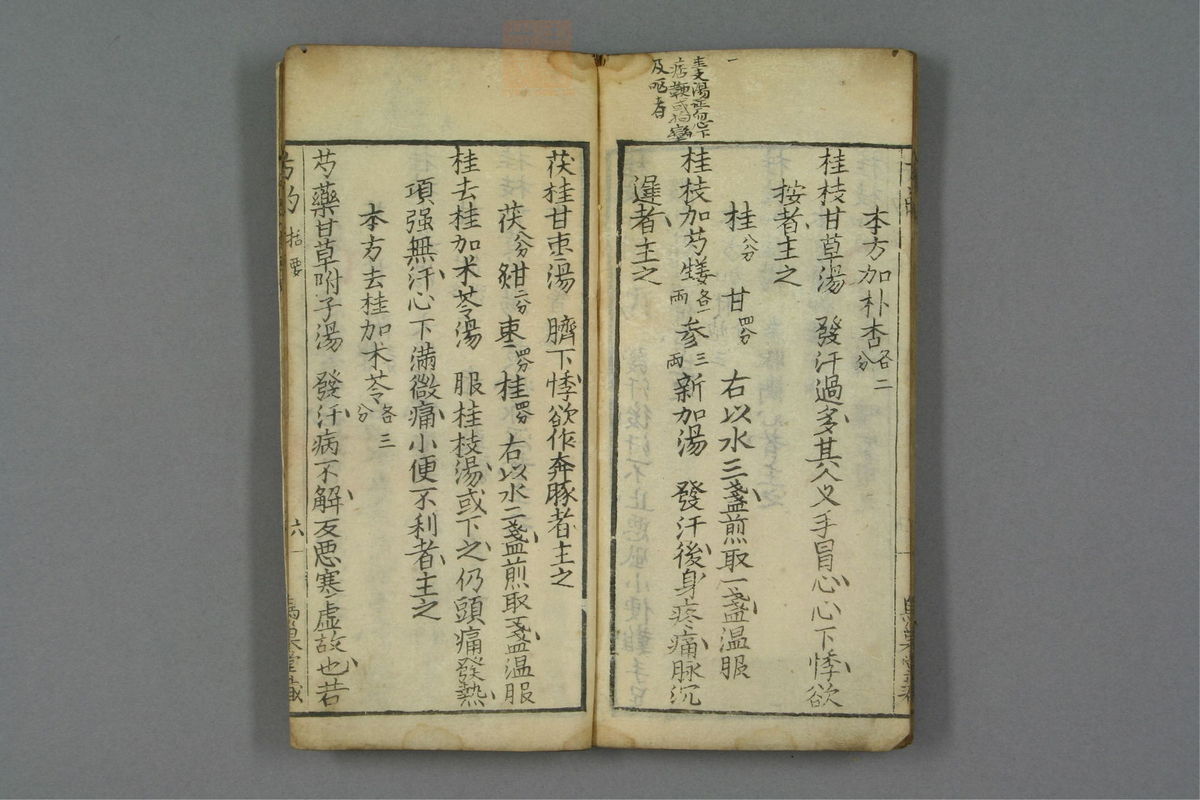 本方加朴杏各二分
桂枝甘草湯　發汗過多其人叉手冒心心下悸欲
按者主之
桂八分　甘四分　右以水三盞煎取一盞温服
桂枝加芍
各一两
参三两新加湯　發汗後身疼痛脉沉
遲者主之
茯桂甘枣湯　臍下悸欲作奔豚者主之
茯八分　甘二分　枣四分　桂四分　右以水二盞煎取一盞温服
桂去桂加术苓湯　服桂枝湯或下之仍頭痛發熱
項强無汗心下満微痛小便不利者主之
本方去桂加术苓各三分
芍藥甘草附子湯　發汗病不解反悪寒虚故也若
六